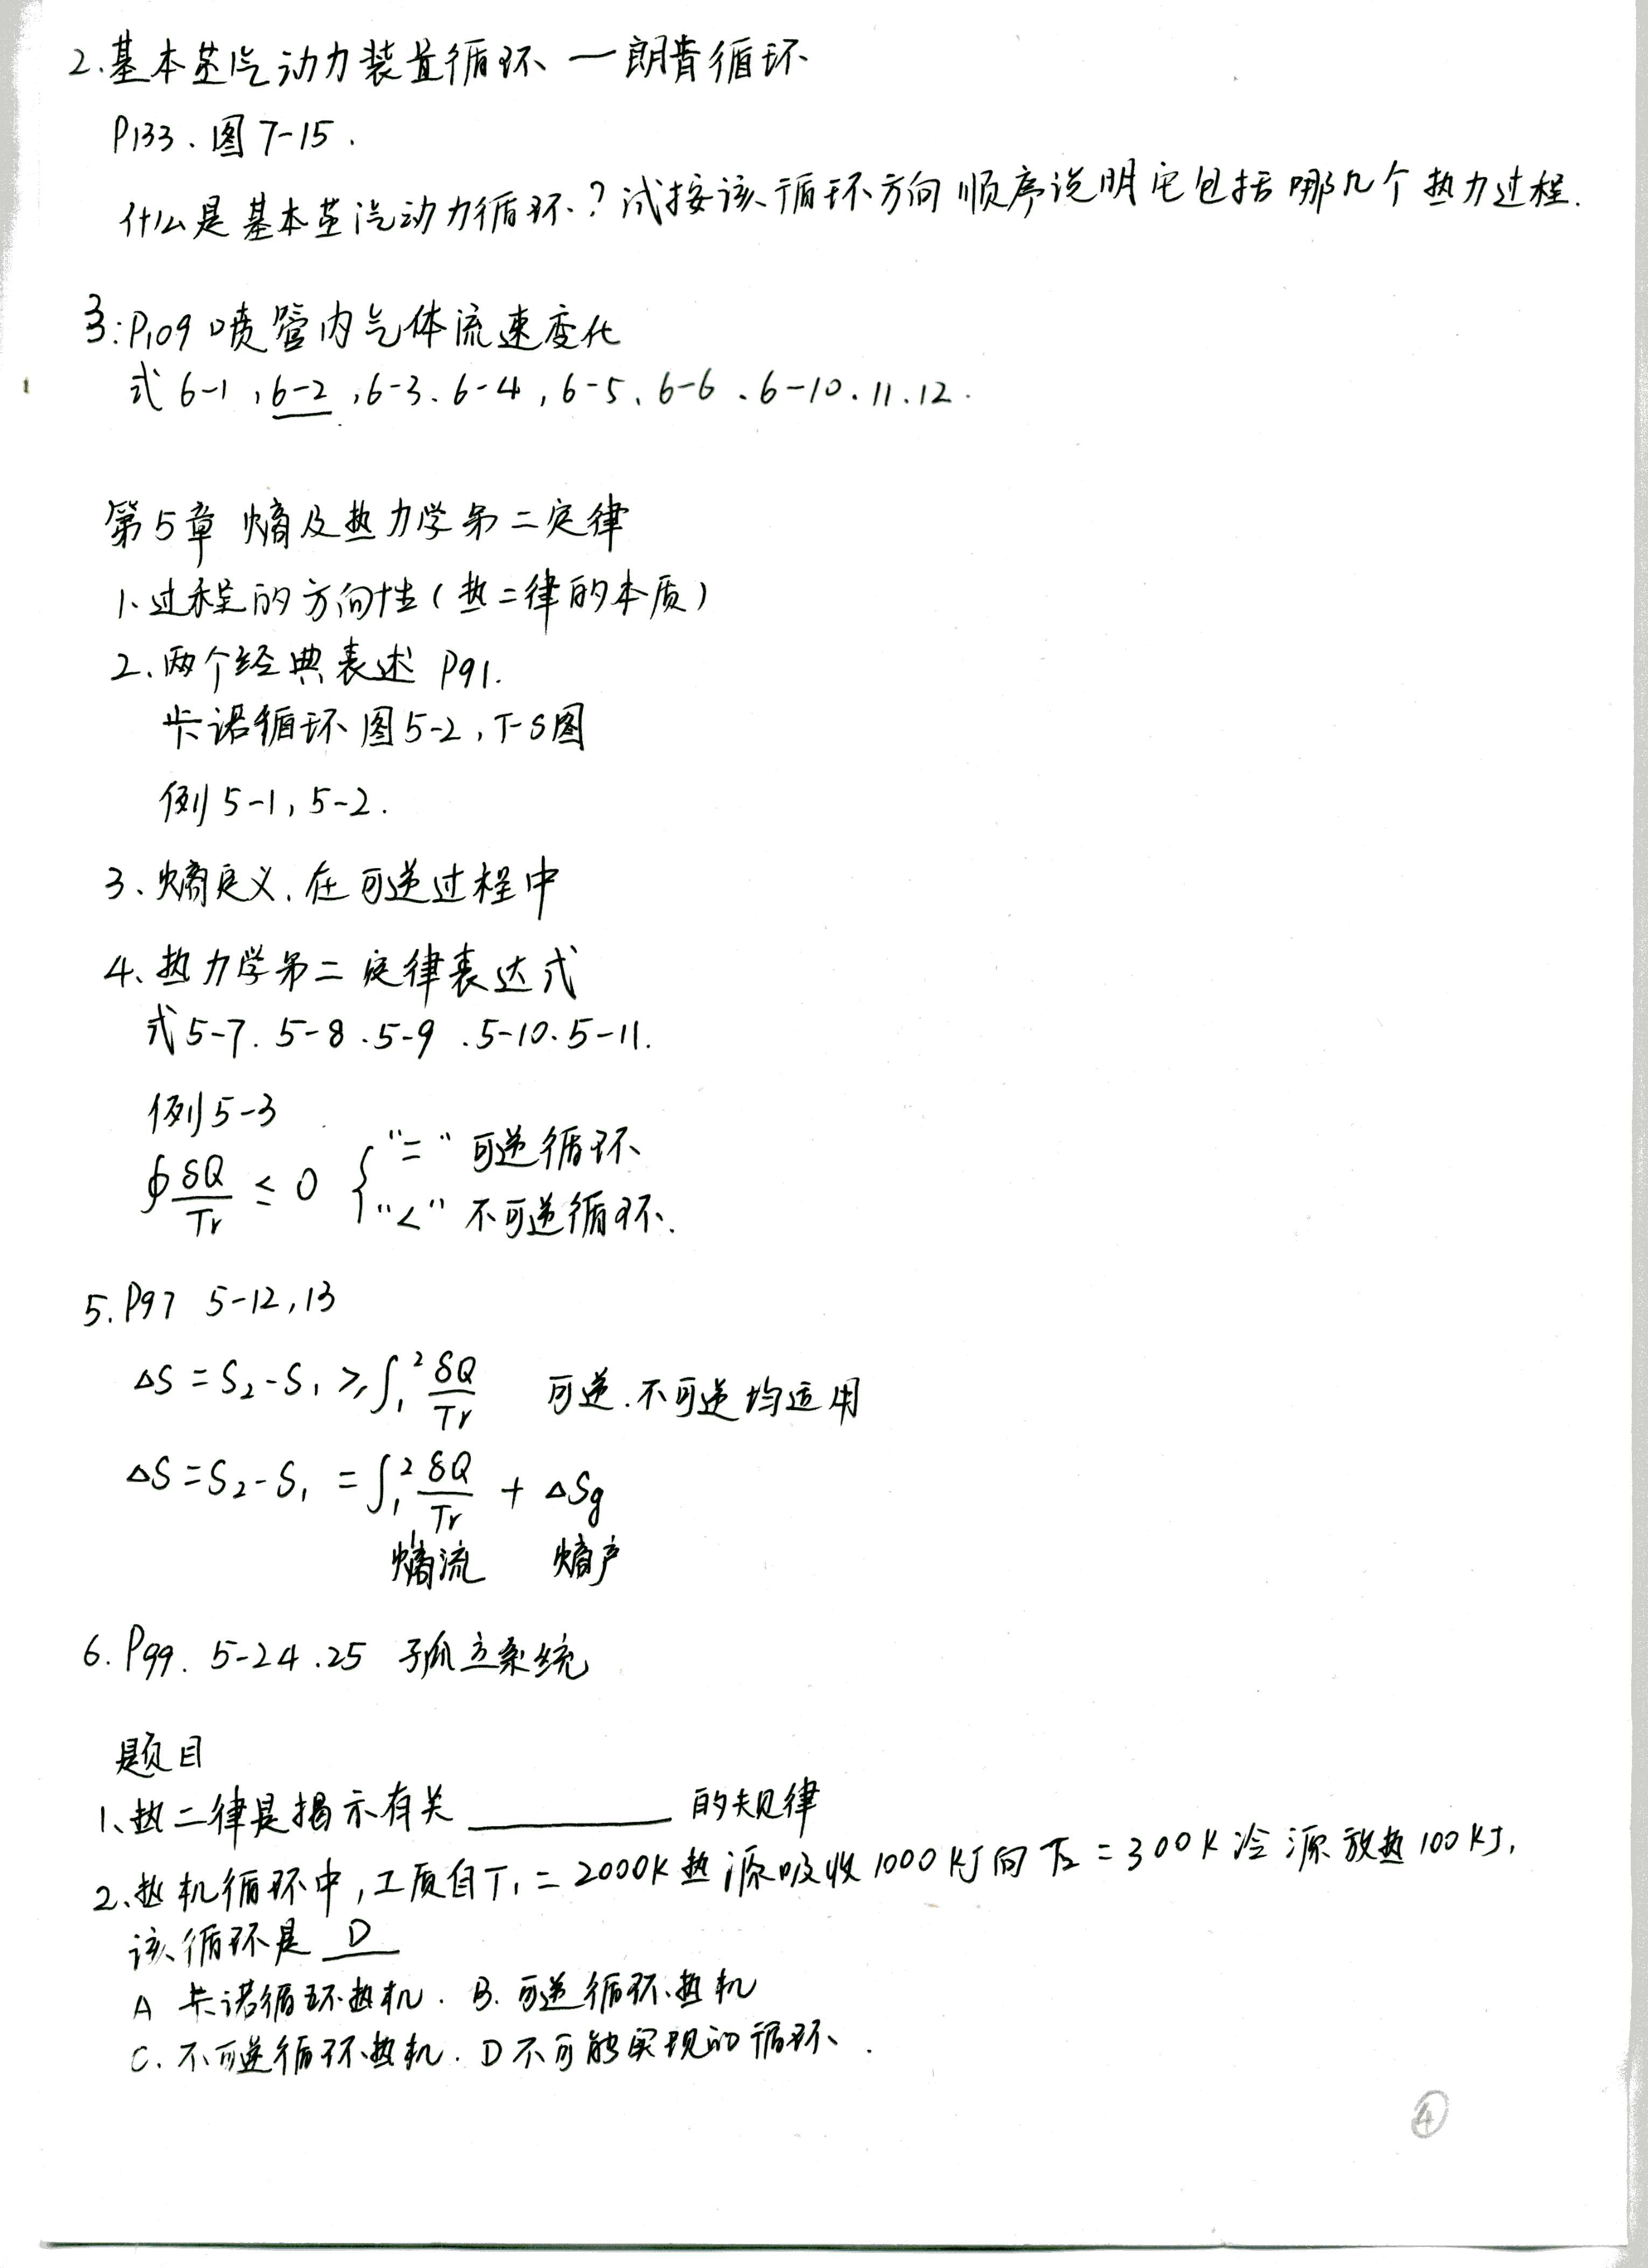 2.基本蒸汽动力装置循环 一朗肯循环
P133、图7-15.
什么是基本蒸汽动力循环?试按该循环方向顺序说明它包括哪几个热力过程.
3:P109喷管内气体流速变化
式6-1,6-2,6-3、6-4,6-5、6-6、6-10.11.12.
第5章 熵及热力学第二定律
1、过程的方向性(热二律的本质)
2、两个经典表述 P91.
卡诺循环图5-2,T-S图
例5-1,5-2.
3、熵定义.在可逆过程中
4、热力学第二定律表达式
式5-7.5-8.5-9.5-10.5-11.
例5-3
∮δQ/Tr ≤ 0 { "=" 可逆循环
"<" 不可逆循环.
5.P97 5-12,13
△S=S₂-S₁≥∫₁²δQ/Tr 可逆.不可逆均适用
△S=S₂-S₁=∫₁²δQ/Tr + △Sg
熵流 熵产
6.P99. 5-24.25 孤立系统
题目
1、热二律是揭示有关______的规律
2、热机循环中,工质自T₁=2000K热源吸收1000KJ向T₂=300K冷源放热100KJ,
该循环是 D
A 卡诺循环热机. B.可逆循环热机
C.不可逆循环热机. D不可能实现的循环.
④